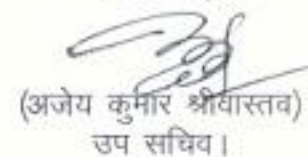 (अजेय कुमार श्रीवास्तव)
उप सचिव।